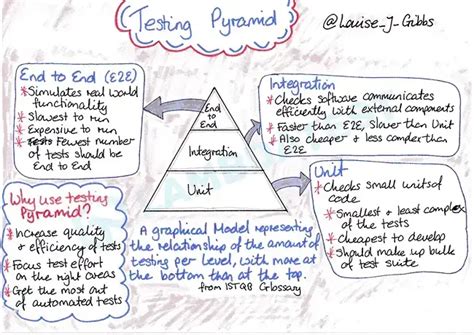 Testing Pyramid
@Louise_J_Gibbs
End to End (E2E)
* Simulates real world
functionality
* Slowest to run
* Expensive to run
* Tests Fewest number
of tests should be
End to End
End
to
End
Integration
Unit
Integration
* Checks software communicates
efficiently with external components
* Faster than E2E, Slower than Unit
* Also cheaper & less complex than
E2E
Unit
* Checks small units of
code
* Smallest & least complex
of the tests
* Cheapest to develop
* Should make up bulk
of test suite
Why use testing
Pyramid?
* Increase quality
& efficiency of tests
* Focus test effort
on the right areas
* Get the most out
of automated tests
A graphical Model representing
the relationship of the amount of
testing per level, with more at
the bottom than at the top.
from ISTQB Glossary